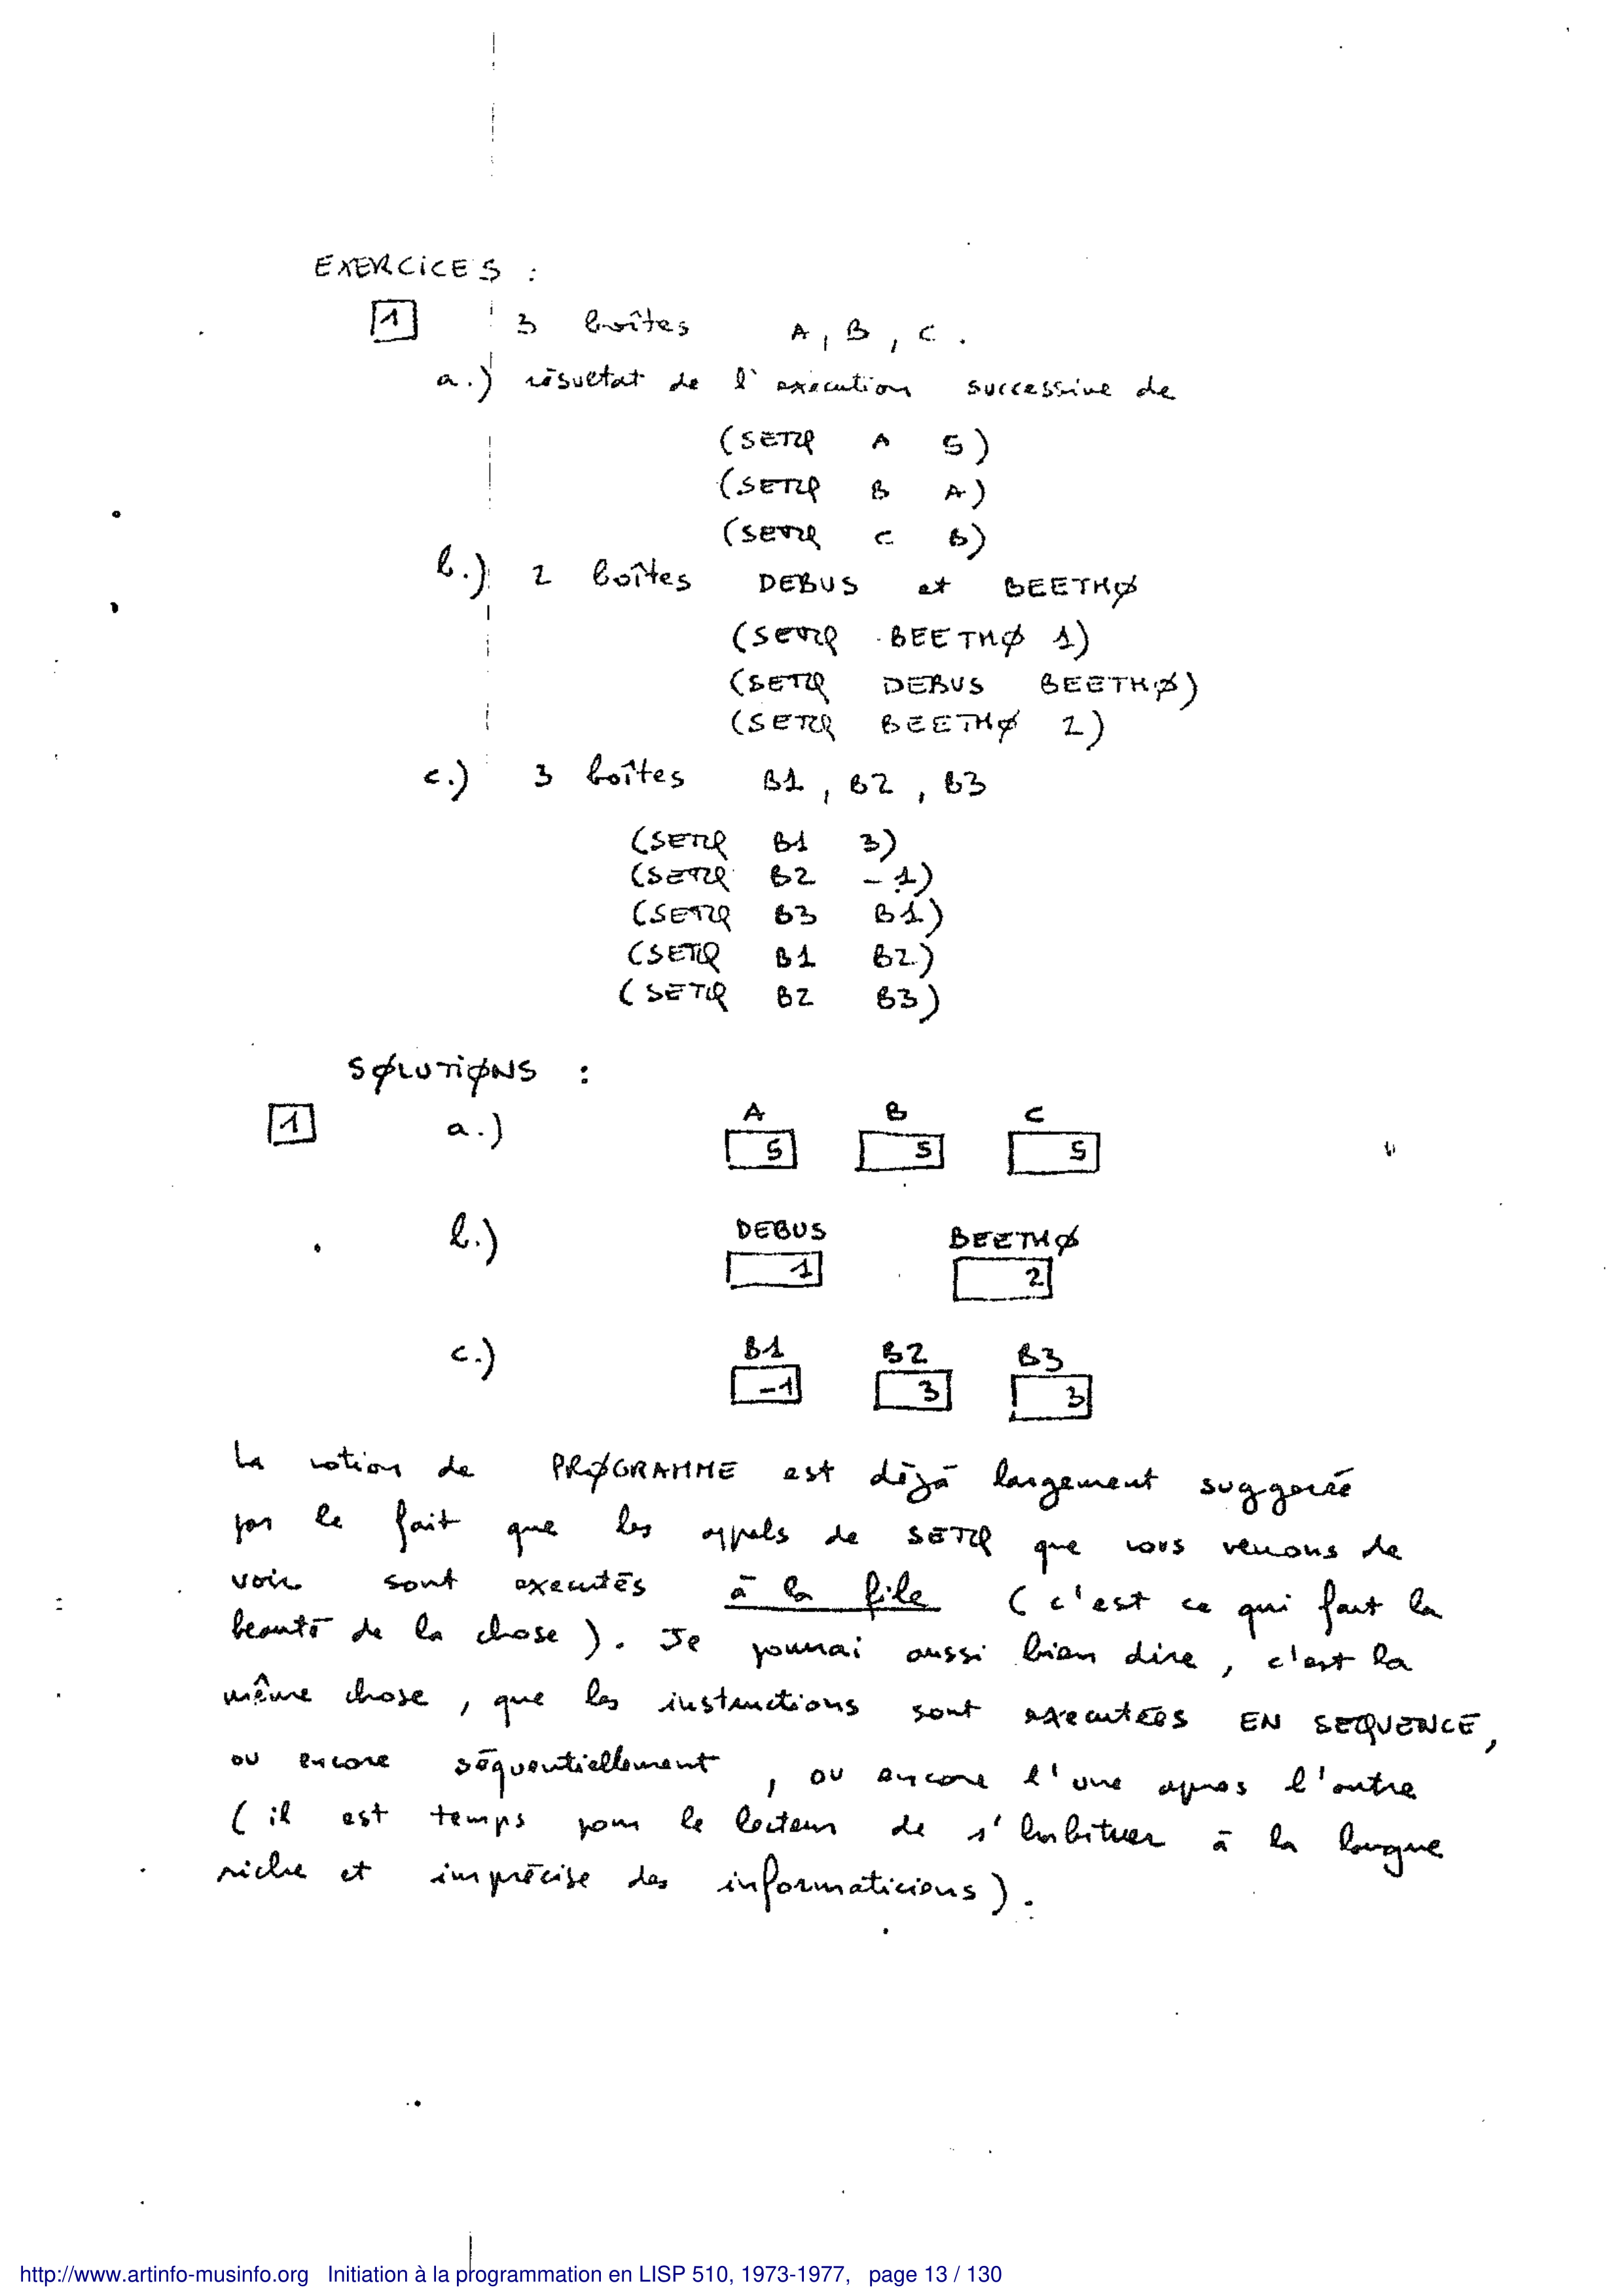 EXERCICES :
1 3 boîtes A, B, C.
a.) résultat de l'execution successive de
(SETQ A 5)
(SETQ B A)
(SETQ C B)
b.) 2 boîtes DEBUS et BEETHØ
(SETQ BEETHØ 1)
(SETQ DEBUS BEETHØ)
(SETQ BEETHØ 2)
c.) 3 boîtes B1, B2, B3
(SETQ B1 3)
(SETQ B2 -1)
(SETQ B3 B1)
(SETQ B1 B2)
(SETQ B2 B3)
SØLUTIØNS :
A B C
1 a.) 5 5 5
DEBUS BEETHØ
b.) 1 2
B1 B2 B3
c.) -1 3 3
La notion de PRØGRAMME est déjà largement suggerée
par le fait que les appels de SETQ que nous venons de
voir sont executés à la file (c'est ce qui fait la
beauté de la chose). Je pourrai aussi bien dire, c'est la
même chose, que les instructions sont executées EN SEQUENCE,
ou encore séquentiellement, ou encore l'une apres l'autre
(il est temps pour le lecteur de s'habituer à la langue
riche et imprécise des informaticiens).
http://www.artinfo-musinfo.org Initiation à la programmation en LISP 510, 1973-1977, page 13 / 130